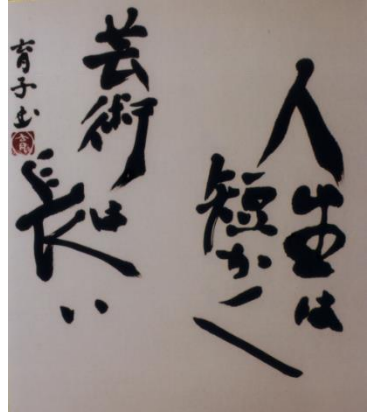 人生は
短かく
芸術は
長い
育子書
育